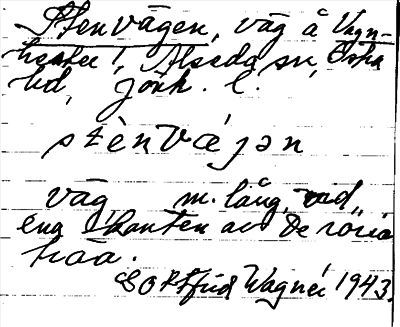 Stenvägen, väg å Vagn-
hester!, Alseda sn, Östra
hd, Jönk. l.
stènvá́jən
väg, m. lång, vid
ena kanten av De röria
Gottfrid Wagner 1943.